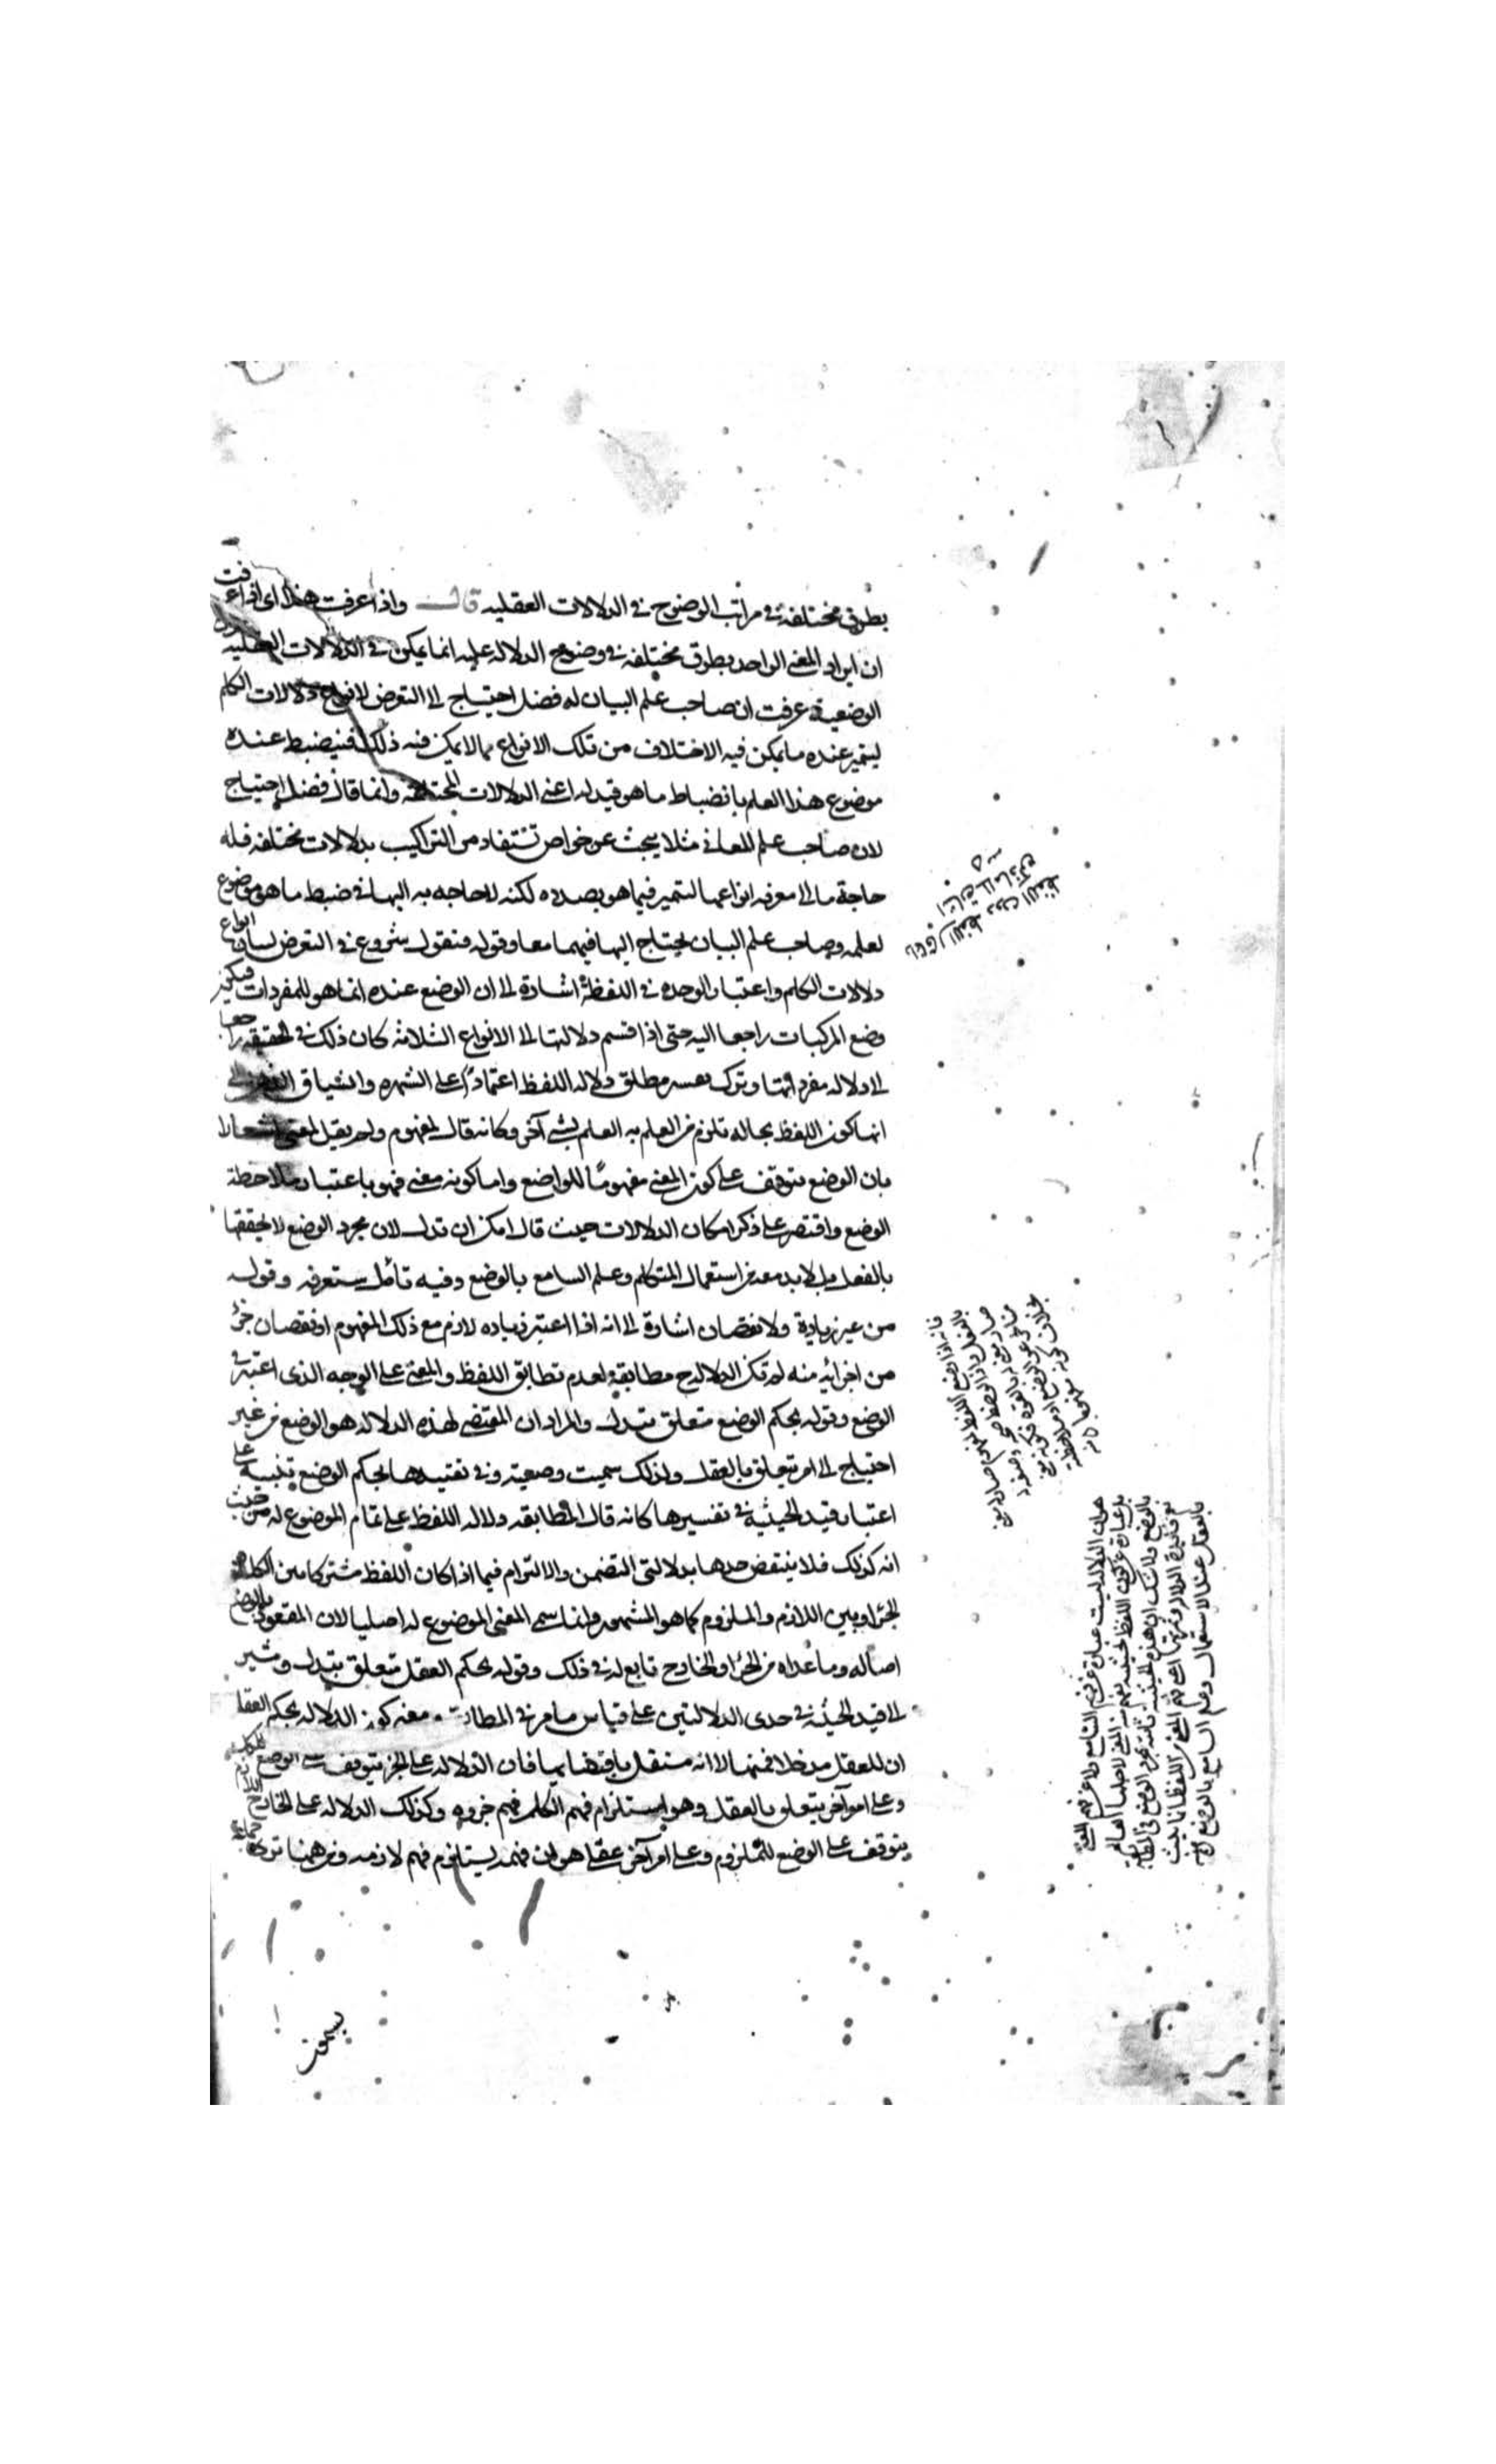 بطرق مختلفة في مراتب الوضوح في الدلالات العقلية قال واذا عرفت هذا اى اذا عرفت
ان ايراد المعنى الواحد بطرق مختلفة في وضوح الدلالة عليه انما يمكن في الدلالات العقلية دون
الوضعية عرفت ان صاحب علم البيان له فضل احتياج الى التعرض لانواع دلالات الكلم
ليتميز عنده ما يمكن فيه الاختلاف من تلك الانواع مما لا يمكن فيه ذلك فينضبط عنده
موضوع هذا العلم بانضباط ما هو قيد له اعنى الدلالات المختلفة وانما قال فضل احتياج
لان صاحب علم المعاني مثلا يبحث عن خواص تستفاد من التراكيب بدلالات مختلفة فله
حاجة ما الى معرفة انواعها لتتميز فيما هو بصدده لكنه لا حاجه به اليها في ضبط ما هو موضوع
لعلمه وصاحب علم البيان يحتاج اليها فيهما معا وقوله فنقول شروع في التعرض لبيان انواع
دلالات الكلم واعتبار الوحدة في اللفظة اشارة الى ان الوضع عنده انما هو للمفردات ويكون
وضع المركبات راجعا اليه حتى اذا قسم دلالتها الى الانواع الثلاثة كان ذلك في الحقيقة راجعا
الى دلالة مفرداتها وترك تفسير مطلق دلالة اللفظ اعتمادا على الشهره وانسياق الذهن الى
انها كون اللفظ بحالة يلزم من العلم به العلم بشئ آخر وكانه قال لمفهوم ولم يقل لمعنى اشعارا
بان الوضع يتوقف على كون المعنى مفهومًا للواضع واما كونه معنى فهو باعتبار ملاحظة
الوضع واقتصر على ذكر امكان الدلالات حيث قال امكن ان تدل لان مجرد الوضع لا يحققها
بالفعل بل لا بد معه من استعمال المتكلم وعلم السامع بالوضع وفيه تأمل ستعرفه وقوله
من غير زيادة ولا نقصان اشارة الى انه اذا اعتبر زياده لازم مع ذلك المفهوم او نقصان جزء
من اجزائه منه لم تكن الدلالة ح مطابقة لعدم تطابق اللفظ والمعنى على الوجه الذى اعتبر في
الوضع وقوله بحكم الوضع متعلق بتدل والمراد ان المقتضى لهذه الدلالة هو الوضع من غير
احتياج الى امر يتعلق بالعقل ولذلك سميت وضعية وفي تقييدها بحكم الوضع تنبيه على
اعتبار قيد الحيثية في تفسيرها كانه قال المطابقة دلالة اللفظ على تمام الموضوع له من حيث
انه كذلك فلا ينتقض حدها بدلالتى التضمن والالتزام فيما اذا كان اللفظ مشتركا بين الكل و
الجزء او بين اللازم والملزوم كما هو المشهور وانما سمى المعنى الموضوع له اصليا لان المقصود بالوضع
اصالة وما عداه من الجزء او الخارج تابع له في ذلك وقوله بحكم العقل متعلق بتدل ومشير
الى قيد الحيثية في حدى الدلالتين على قياس ما مر في المطابقة ومعنى كون الدلالة بحكم العقل
ان للعقل مدخلا فيها لا انه مستقل باقتضائها فان الدلالة على الجزء يتوقف على الوضع للكل
وعلى امر آخر يتعلق بالعقل وهو استلزام فهم الكل فهم جزءه وكذلك الدلالة على الخارج اللازم
يتوقف على الوضع للملزوم وعلى امر آخر عقلى هو ان فهمه يستلزم فهم لازمه ومن ههنا ترى جماعة
هو ان الدلالة ليست عبارة عن فهم السامع ولا عن فهم المعنى
بل عبارة عن كون اللفظ بحيث يفهم منه المعنى
بالوضع ولا شك ان هذه الحيثية ثابتة بمجرد الوضع في المطابقة
نعم فائدة الدلالة وثمرتها اعنى فهم المعنى من اللفظ انما يثبت
بالفعل عند الاستعمال وعلم السامع بالوضع